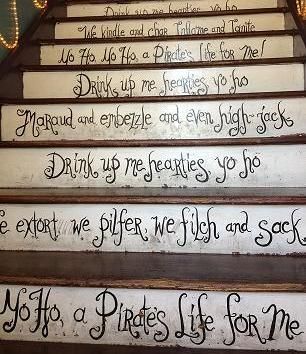 Drink up me hearties yo ho
We kindle and char Inflame and Ignite
Yo Ho, Yo Ho, a Pirate's life for Me!
Drink up me hearties yo ho
Maraud and embezzle and even high-jack
Drink up me hearties, yo ho
e extort, we pilfer, we filch and sack
Yo Ho, a Pirate's Life for Me